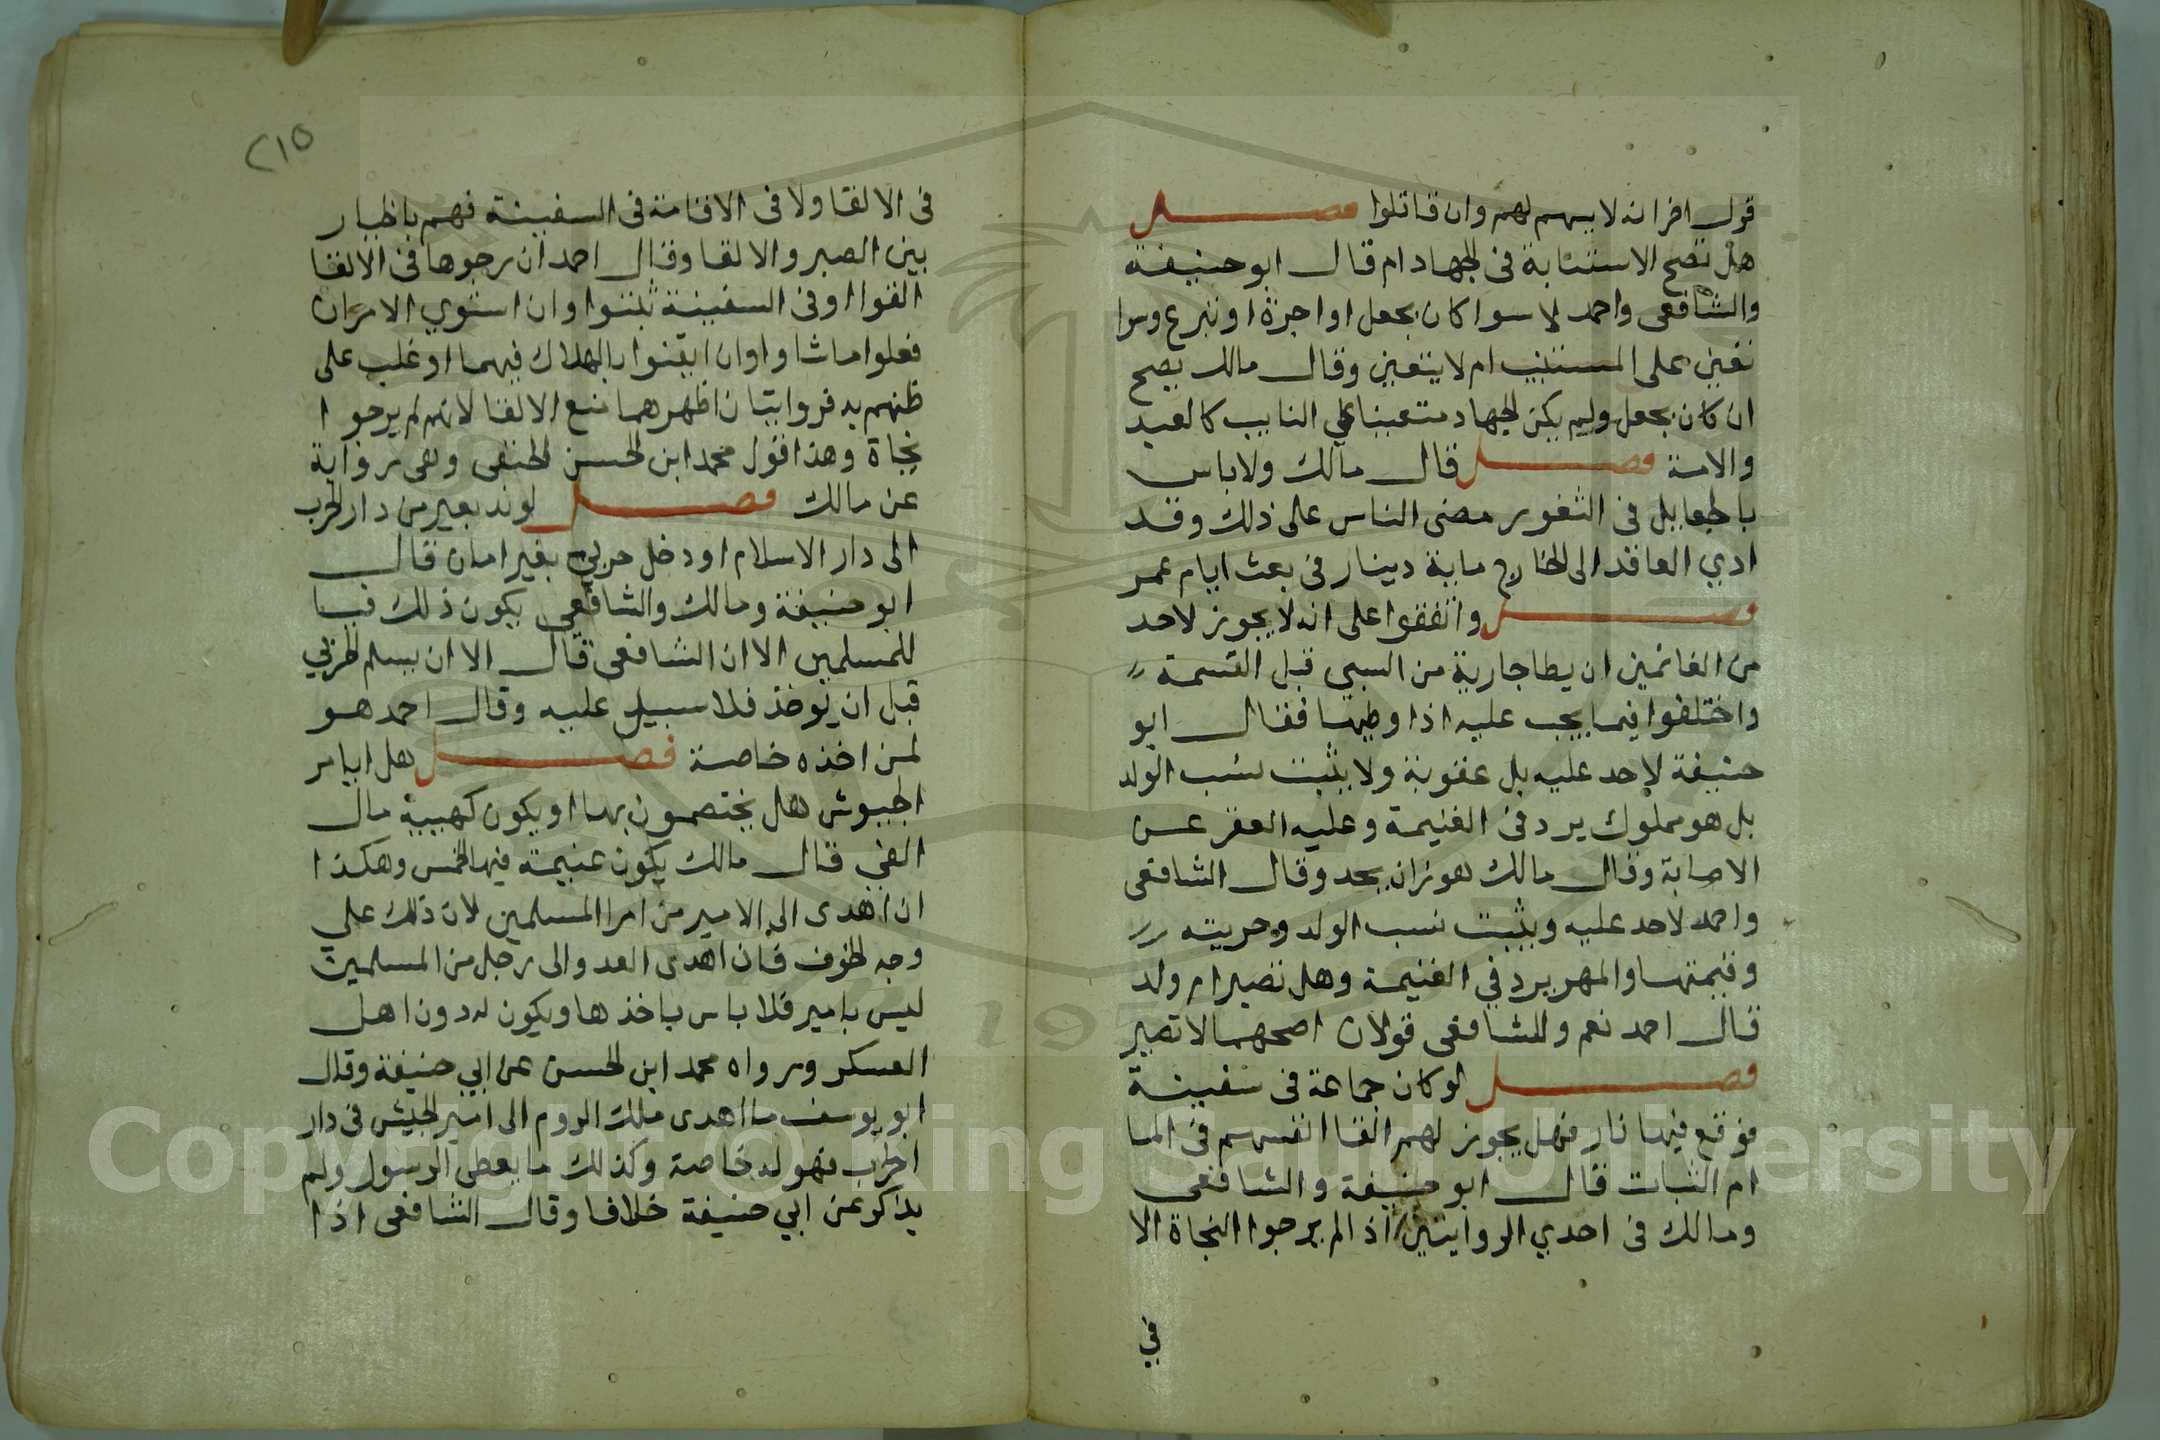 قول اخر انه لا يسهم لهم وان قاتلوا فصل
هل تصح الاستنابة في الجهاد ام قال ابو حنيفة
والشافعي واحمد لا سوا كان بجعل او اجرة او تبرع وسوا
تعين على المستنيب ام لا يتعين وقال مالك يصح
ان كان بجعل ولم يكن الجهاد متعينا على النايب كالعبد
والامة فصل قال مالك ولا باس
بالجعايل في الثغور مضى الناس على ذلك وقد
ادي القاعد الى الخارج ماية دينار في بعث ايام عمر
فصل واتفقوا على انه لا يجوز لاحد
من الغانمين ان يطا جارية من السبي قبل القسمة
واختلفوا فيما يجب عليه اذا وطيها فقال ابو
حنيفة لا حد عليه بل عقوبة ولا يثبت نسب الولد
بل هو مملوك يرد في الغنيمة وعليه العقر عن
الاصابة وقال مالك هو زان يحد وقال الشافعي
واحمد لا حد عليه ويثبت نسب الولد وحريته
وقيمتها والمهر يرد في الغنيمة وهل تصير ام ولد
قال احمد نعم وللشافعي قولان اصحهما لا تصير
فصل لو كان جماعة في سفينة
فوقع فيها نار فهل يجوز لهم القا انفسهم في الما
ام الثبات قال ابو حنيفة والشافعي
ومالك في احدي الروايتين اذا لم يرجوا النجاة الا
في
٢١٥
في الالقا ولا في الاقامة في السفينة فهم بالخيار
بين الصبر والالقا وقال احمد ان رجوها في الالقا
القوا او في السفينة ثبتوا وان استوي الامران
فعلوا ما شاوا وان ايقنوا بالهلاك فيهما او غلب على
ظنهم به فروايتان اظهرهما منع الالقا لانهم لم يرجوا
نجاة وهذا قول محمد ابن الحسن الحنفي وهي رواية
عن مالك فصل لو ند بعير من دار الحرب
الى دار الاسلام او دخل حربي بغير امان قال
ابو حنيفة ومالك والشافعي يكون ذلك فيا
للمسلمين الا ان الشافعي قال الا ان يسلم الحربي
قبل ان يوخذ فلا سبيل عليه وقال احمد هو
لمن اخذه خاصة فصل هل ايامر
الجيوش هل يختصمون بها او يكون كهيبة مال
الفي قال مالك يكون غنيمة فيها الخمس وهكذا
ان اهدى الى الامير من امرا المسلمين لان ذلك على
وجه الخوف فان اهدى العدو الى رجل من المسلمين
ليس بامير فلا باس باخذها ويكون له دون اهل
العسكر ورواه محمد ابن الحسن عن ابي حنيفة وقال
ابو يوسف ما اهدى ملك الروم الى امير الجيش في دار
الحرب فهو له خاصة وكذلك ما يعطى الرسول ولم
يذكر عن ابي حنيفة خلافا وقال الشافعي اذا
Copyright © King Saud University